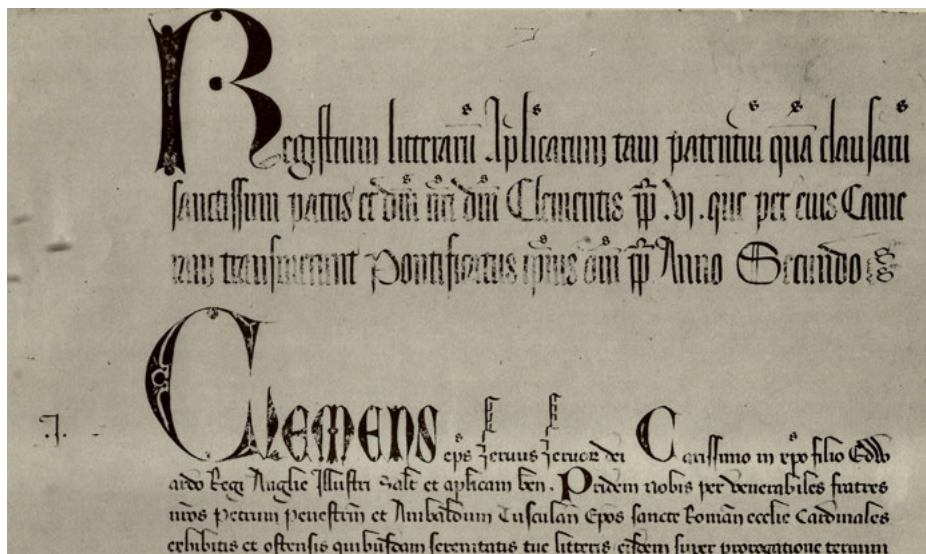 Registrum litterarū Aplicarum tam patentiū quā clausarū
sanctissimi patris et dñi nri dñi Clementis pp̄ .vj. que per eius Came
ram transierunt Pontificatus ipsius dñi pp̄ Anno Secundo
.J.
CLEMENS eps servus servor dei Carissimo in xpo filio Edw
ardo Regi Anglie Illustri Salt et aplicam ben. Pridem nobis per venerabiles fratres
nros Petrum Penestrin et Anibaldum Tusculan Epos sancte Romane ecclie Cardinales
exhibitis et ostensis quibusdam serenitatis tue litteris eisdem super prorogatione